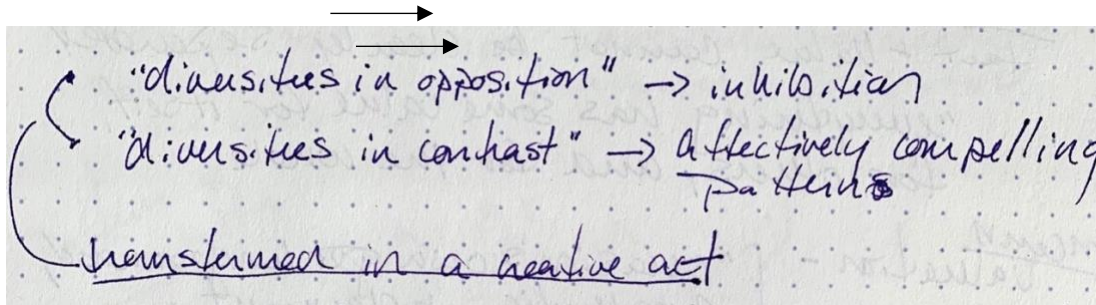 "diversities in opposition" → inhibition
"diversities in contrast" → affectively compelling
patterns
transformed in a creative act